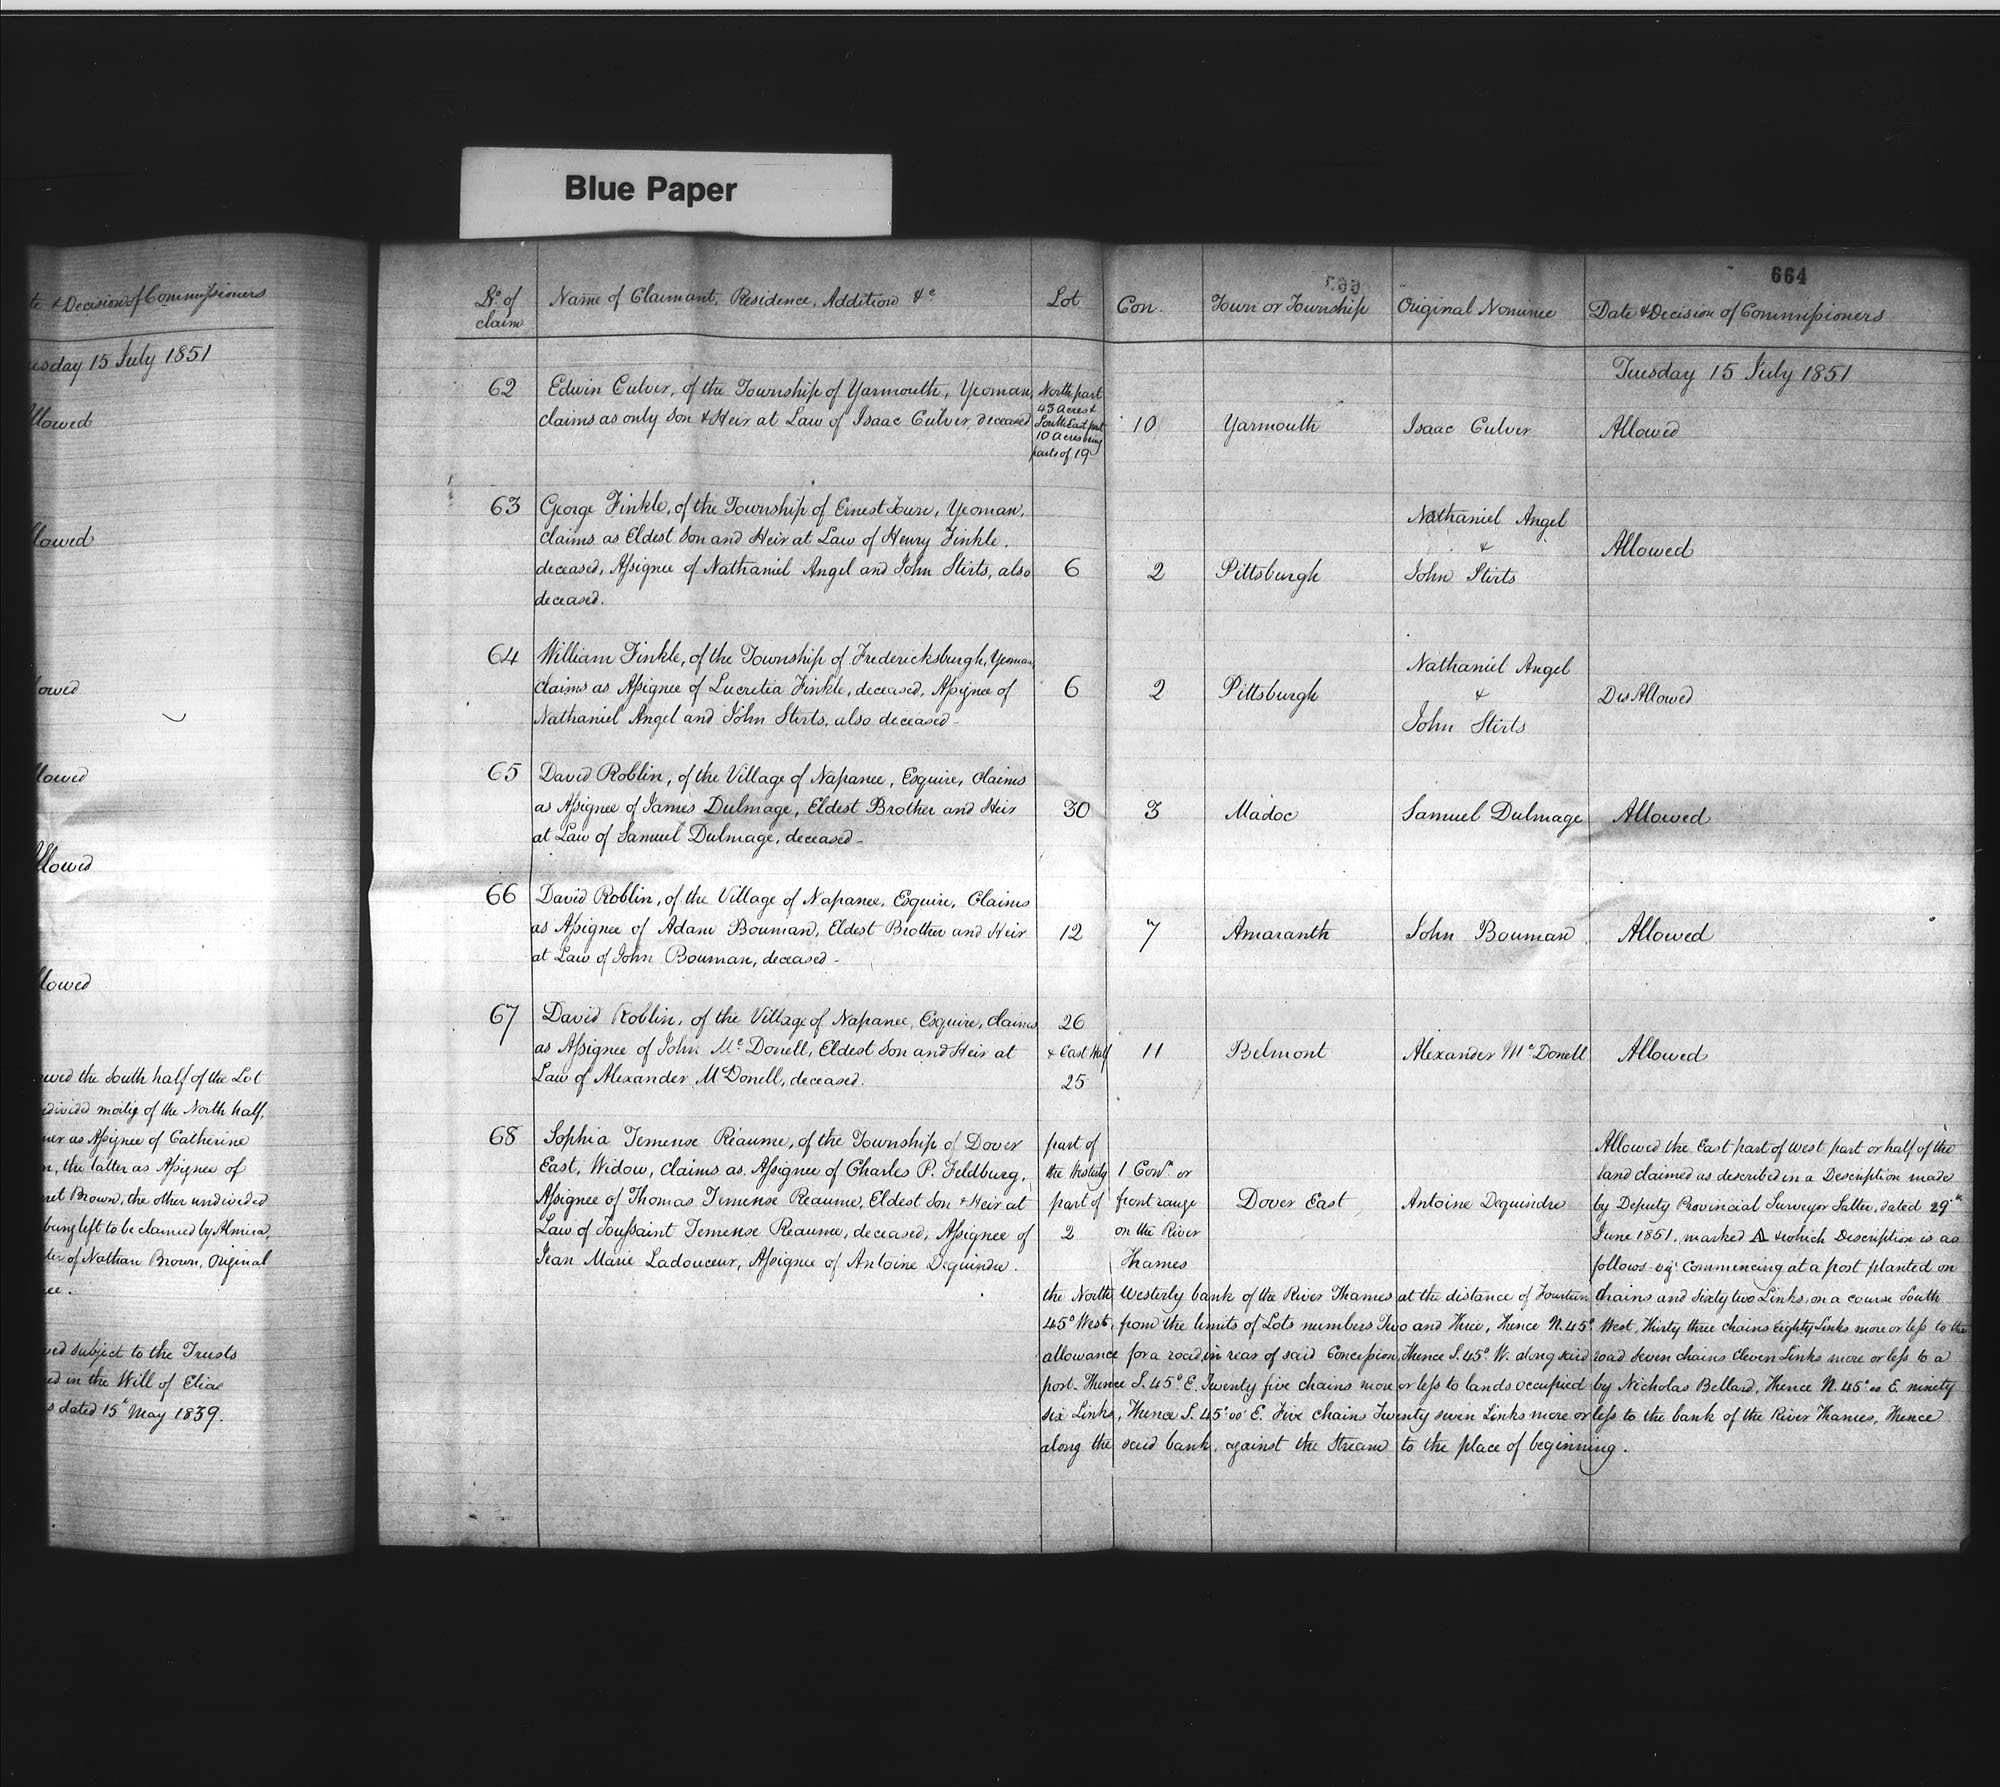 Blue Paper
& Decision of Commissioners
15 July 1851
the South half of the Lot
moitiy of the North half,
as Assignee of Catherine
the latter as Assignee of
Brown, the other undivided
being left to be claimed by Almira,
of Nathan Brown, Original
subject to the Trusts
in the Will of Elias
dated 15th May 1839.
664
No of claim
Name of Claimant, Residence, Addition &c
Lot
Con.
Town or Township
Original Nominee
Date & Decision of Commissioners
Tuesday 15 July 1851
62
Edwin Culver, of the Township of Yarmouth, Yeoman,
claims as only Son & Heir at Law of Isaac Culver, deceased
North part
43 Acres &
South East part
10 Acres being
parts of 19
10
Yarmouth
Isaac Culver
Allowed
63
George Finkle, of the Township of Ernest Town, Yeoman,
claims as Eldest Son and Heir at Law of Henry Finkle,
deceased, Assignee of Nathaniel Angel and John Stirts, also
deceased.
6
2
Pittsburgh
Nathaniel Angel
&
John Stirts
Allowed
64
William Finkle, of the Township of Fredericksburgh, Yeoman,
claims as Assignee of Lucretia Finkle, deceased, Assignee of
Nathaniel Angel and John Stirts, also deceased -
6
2
Pittsburgh
Nathaniel Angel
&
John Stirts
DisAllowed
65
David Roblin, of the Village of Napanee, Esquire, Claims
as Assignee of James Dulmage, Eldest Brother and Heir
at Law of Samuel Dulmage, deceased -
30
3
Madoc
Samuel Dulmage
Allowed
66
David Roblin, of the Village of Napanee, Esquire, Claims
as Assignee of Adam Bouman, Eldest Brother and Heir
at Law of John Bouman, deceased -
12
7
Amaranth
John Bouman
Allowed
67
David Roblin, of the Village of Napanee, Esquire, claims
as Assignee of John McDonell, Eldest Son and Heir at
Law of Alexander McDonell, deceased.
26
& East Half
25
11
Belmont
Alexander McDonell
Allowed
68
Sophia Temense Reaume, of the Township of Dover
East, Widow, claims as Assignee of Charles P. Feldburg,
Assignee of Thomas Temense Reaume, Eldest Son & Heir at
Law of Toussaint Temense Reaume, deceased, Assignee of
Jean Marie Ladouceur, Assignee of Antoine Dequindre.
part of
the Westerly
part of
2
1 Conn or
front range
on the River
Thames
Dover East
Antoine Dequindre
Allowed the East part of West part or half of the
land claimed as described in a Description made
by Deputy Provincial Surveyor Salter, dated 29th
June 1851, marked A & which Description is as
follows viz: Commencing at a post planted on
the North Westerly bank of the River Thames at the distance of Fourteen Chains and Sixty two Links, on a course South
45° West, from the limits of Lots numbers Two and Three, Thence N. 45° West, Thirty three chains Eighty Links more or less to the
allowance for a road in rear of said Concession, Thence S. 45°. W. along said road Seven chains Eleven Links more or less to a
post - Thence S. 45° E. Twenty five chains more or less to lands occupied by Nicholas Bellard, Thence N. 45° 00 E. ninety
six Links, Thence S. 45° 00' E. Five Chains Twenty seven Links more or less to the bank of the River Thames, Thence
along the said bank, against the Stream to the place of beginning.